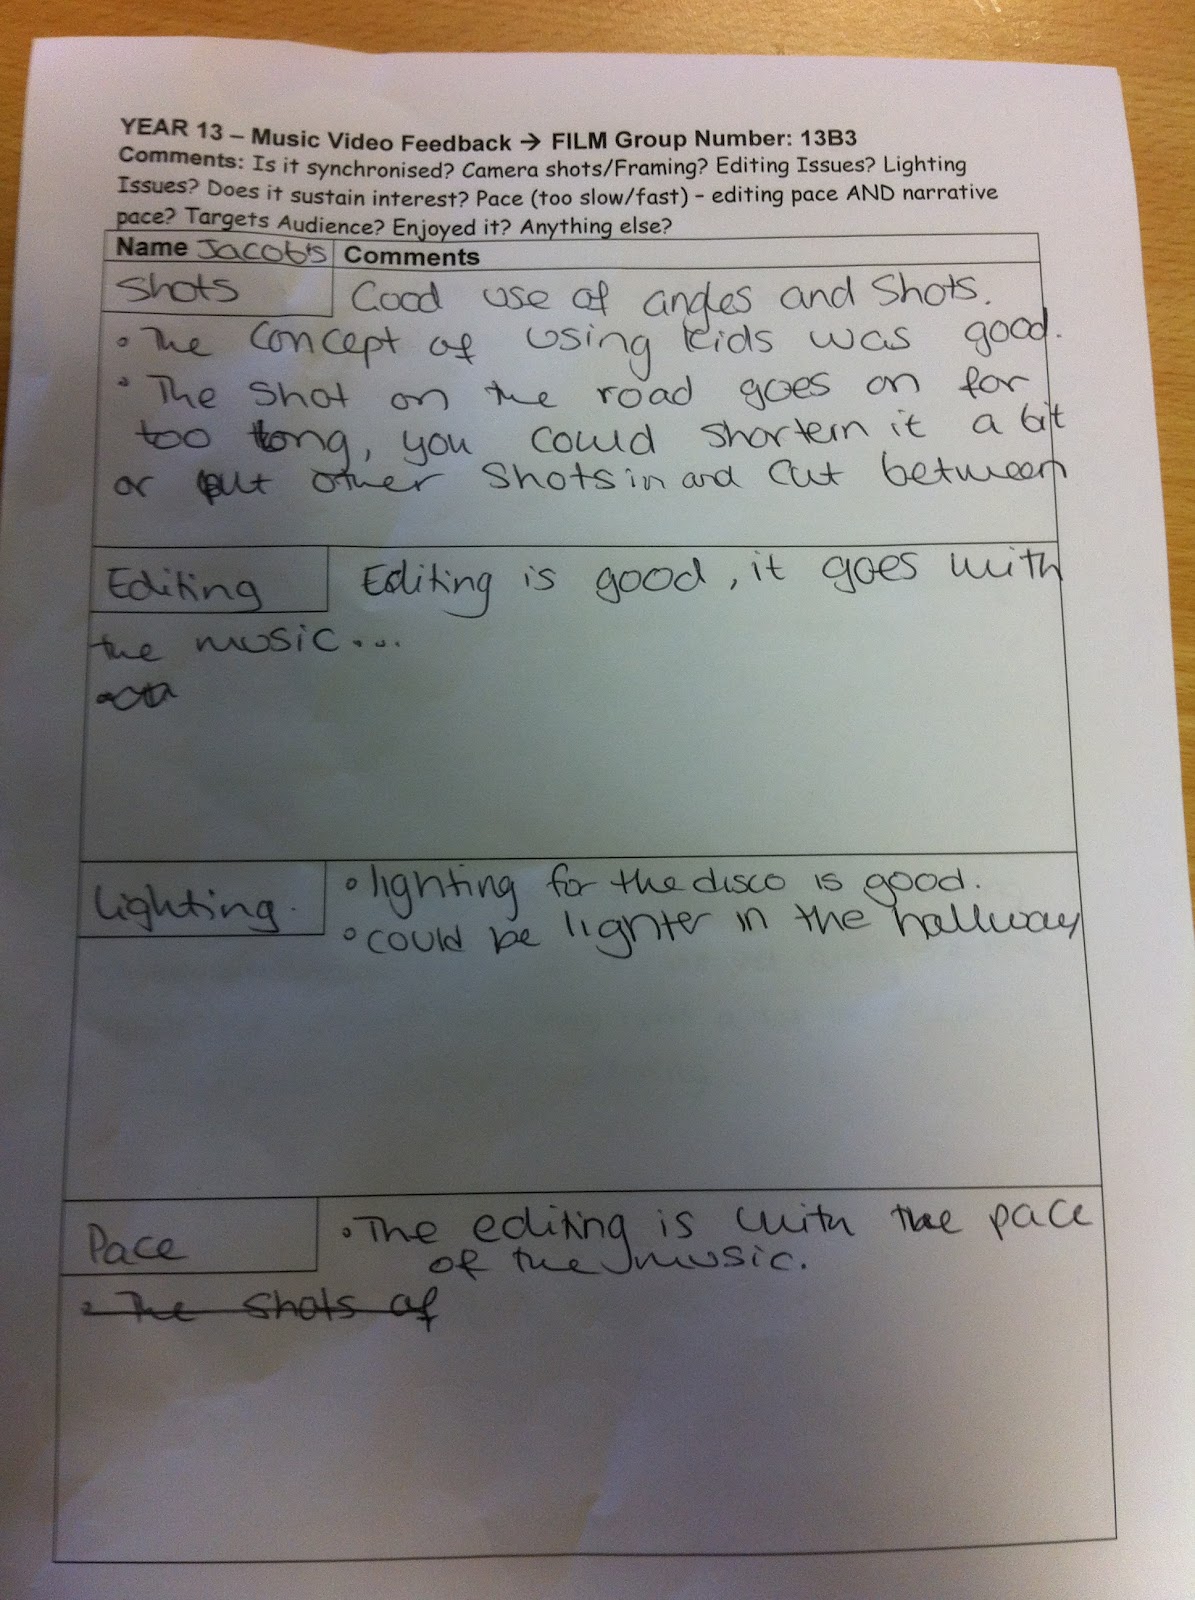 YEAR 13 – Music Video Feedback → FILM Group Number: 13B3
Comments: Is it synchronised? Camera shots/Framing? Editing Issues? Lighting
Issues? Does it sustain interest? Pace (too slow/fast) – editing pace AND narrative
pace? Targets Audience? Enjoyed it? Anything else?
Name Jacob's Comments
Shots Good use of angles and shots.
• The concept of using kids was good.
• The shot on the road goes on for
too long, you could shorten it a bit
or put other shots in and cut between
Editing Editing is good, it goes with
the music...
Lighting. • lighting for the disco is good.
• could be lighter in the hallway
Pace • The editing is with the pace
of the music.
• The shots of